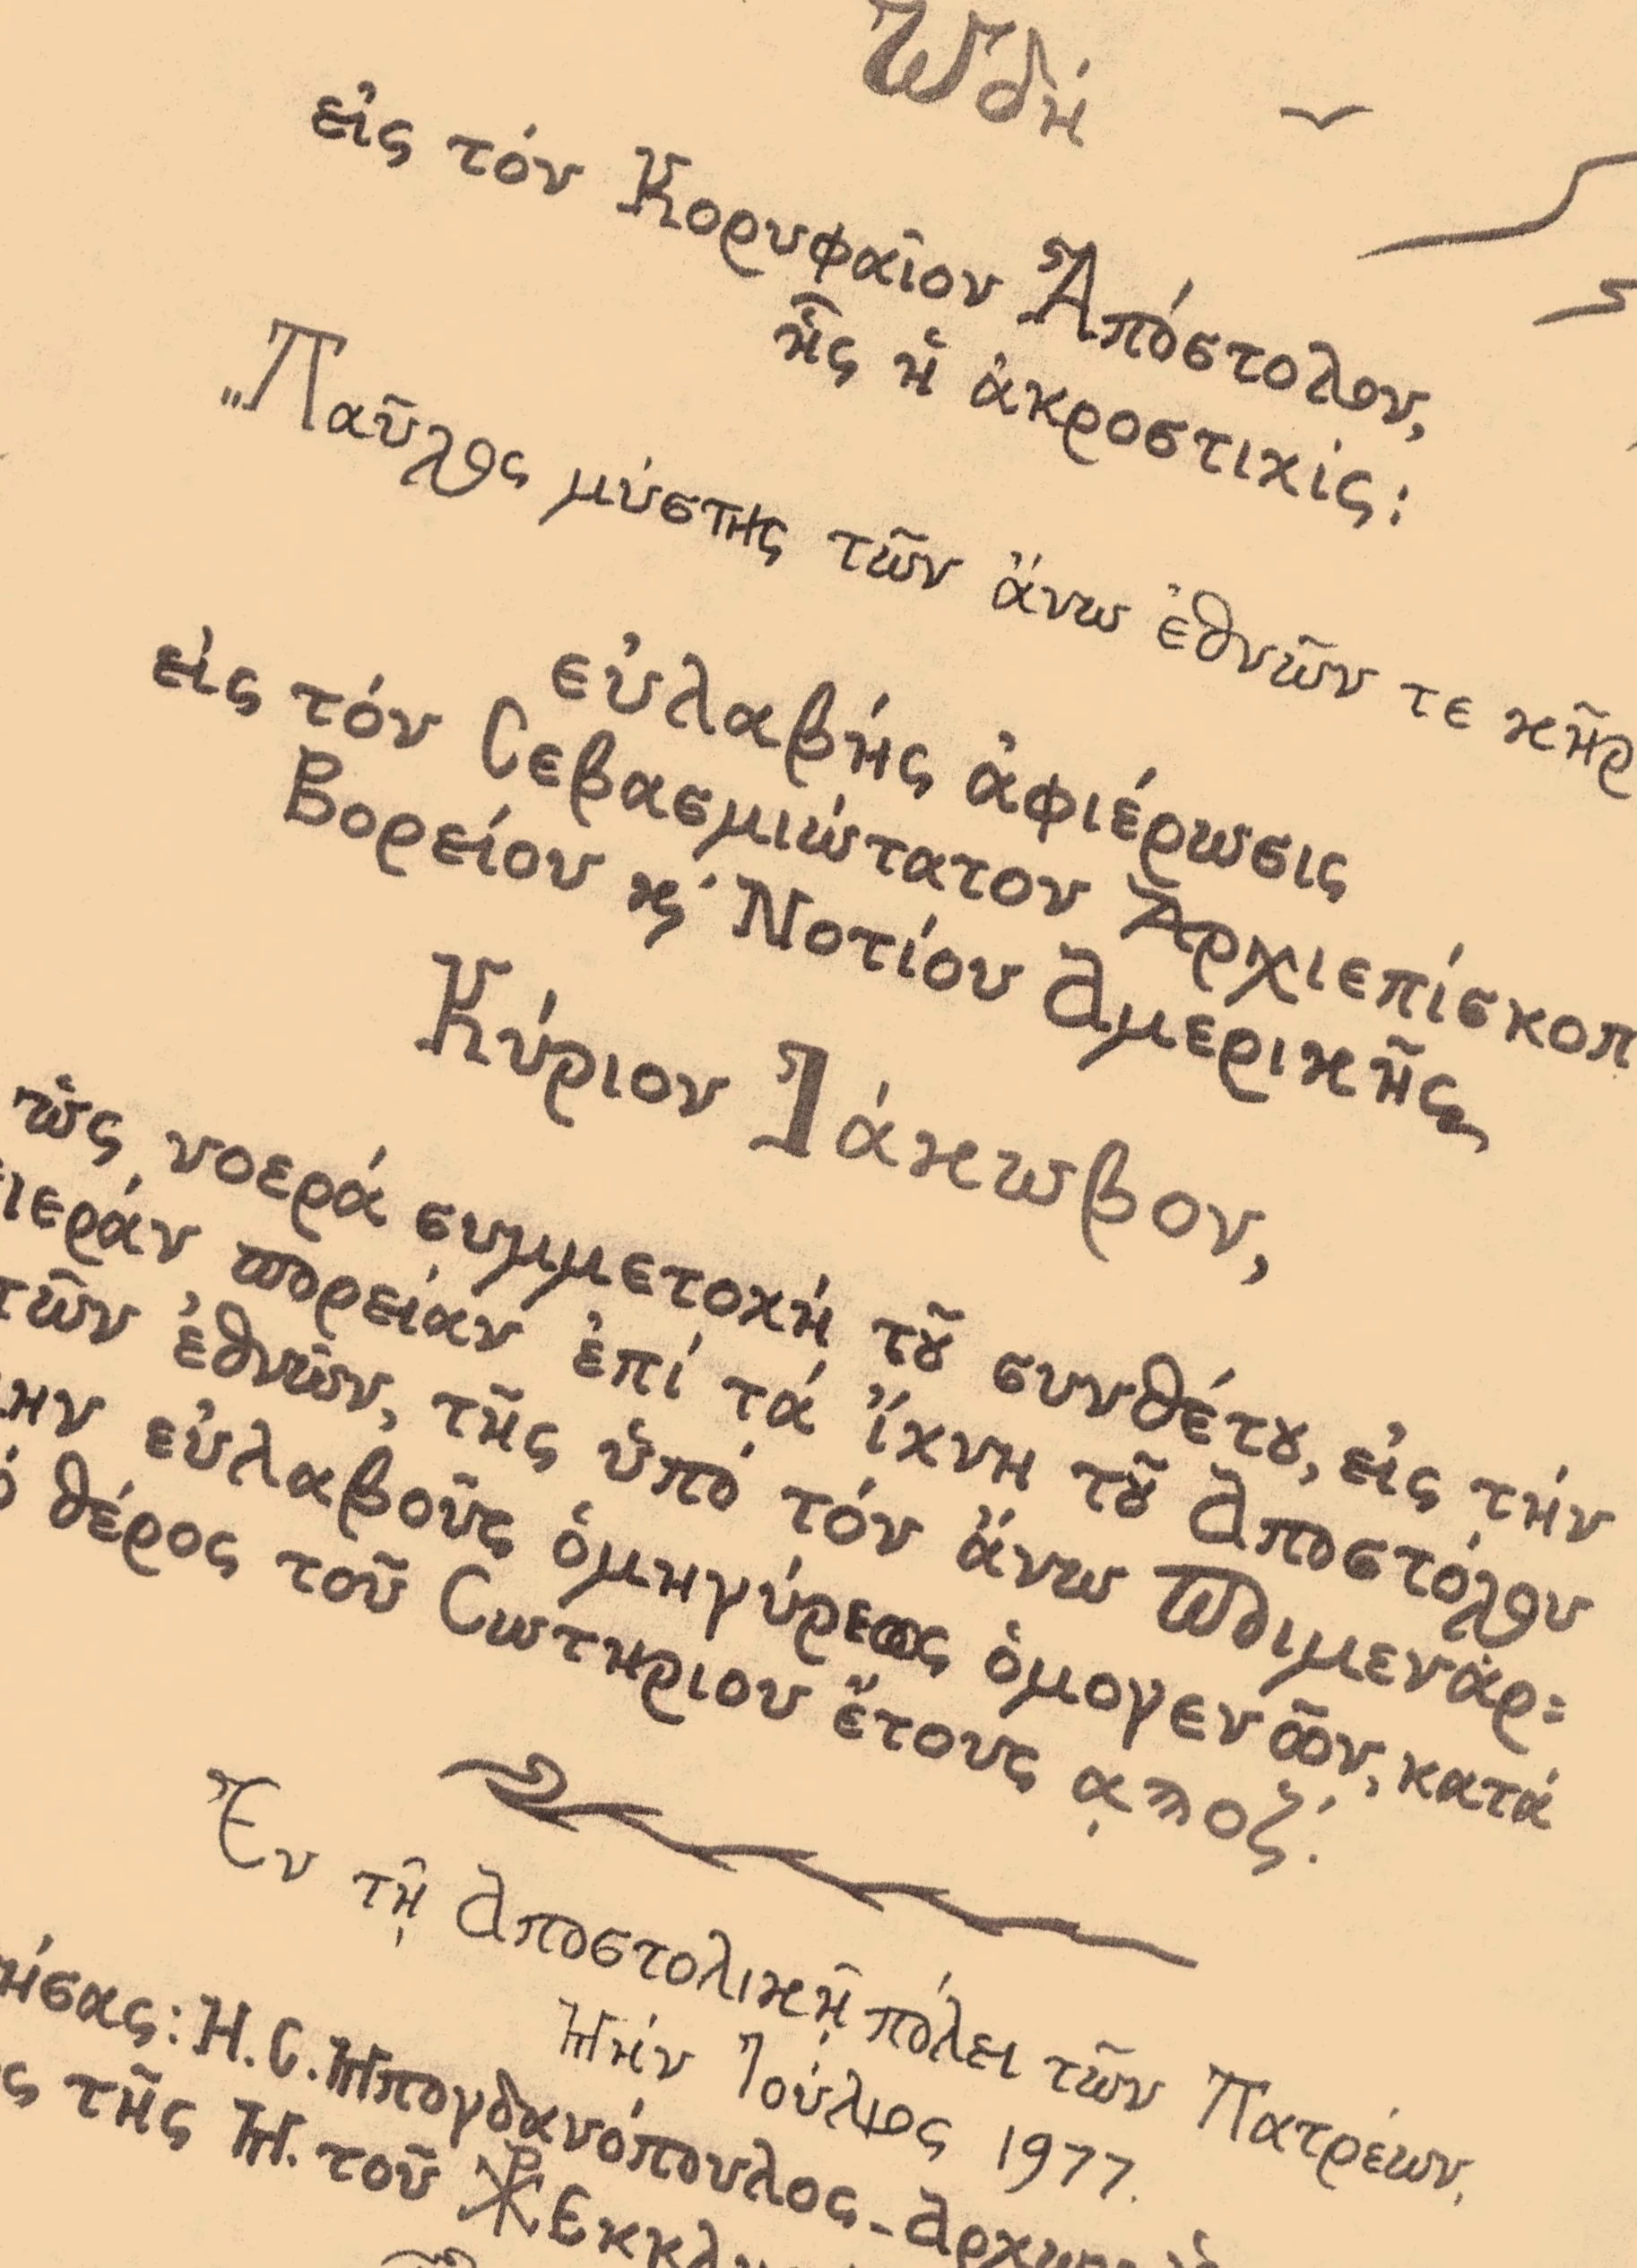 Ὠδή
εἰς τόν Κορυφαῖον Ἀπόστολον,
ἧς ἡ ἀκροστιχίς:
„Παῦλος μύστης τῶν ἄνω ἐθνῶν τε κῆρ
εὐλαβής ἀφιέρωσις
εἰς τόν Σεβασμιώτατον Ἀρχιεπίσκοπ
Βορείου ϗ Νοτίου Ἀμερικῆς
Κύριον Ἰάκωβον,
ὡς νοερά συμμετοχή τοῦ συνθέτου, εἰς τήν
ἱεράν πορείαν ἐπί τά ἴχνη τοῦ Ἀποστόλου
τῶν ἐθνῶν, τῆς ὑπό τόν ἄνω Ποιμενάρ=
ην εὐλαβοῦς ὁμηγύρεως ὁμογενῶν, κατά
ό θέρος τοῦ Σωτηρίου ἔτους ͵αϡοζ΄.
Ἐν τῇ Ἀποστολικῇ πόλει τῶν Πατρέων,
Μήν Ἰούλιος 1977.
ήσας: Η. Σ. Μπογδανόπουλος-
ς τῆς Μ. τοῦ ☧